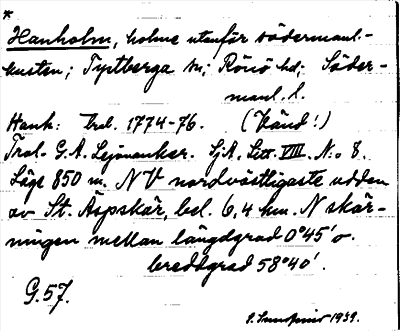 *
Hanholm, holme utanför södermanl-
kusten; Tystberga sn; Rönö hd; Söder-
manl. l.
Hank: bel. 1774-76. (Känd!)
G. A. Lejonanker. SjA, Litt. VIII. No: 8.
Läge 850 m. NV nordvästligaste udden
av St. Aspskär, bel. 6,4 km. N skär-
ningen mellan längdgrad 0°45' o.
breddgrad 58°40'.
G. 57.
1939.